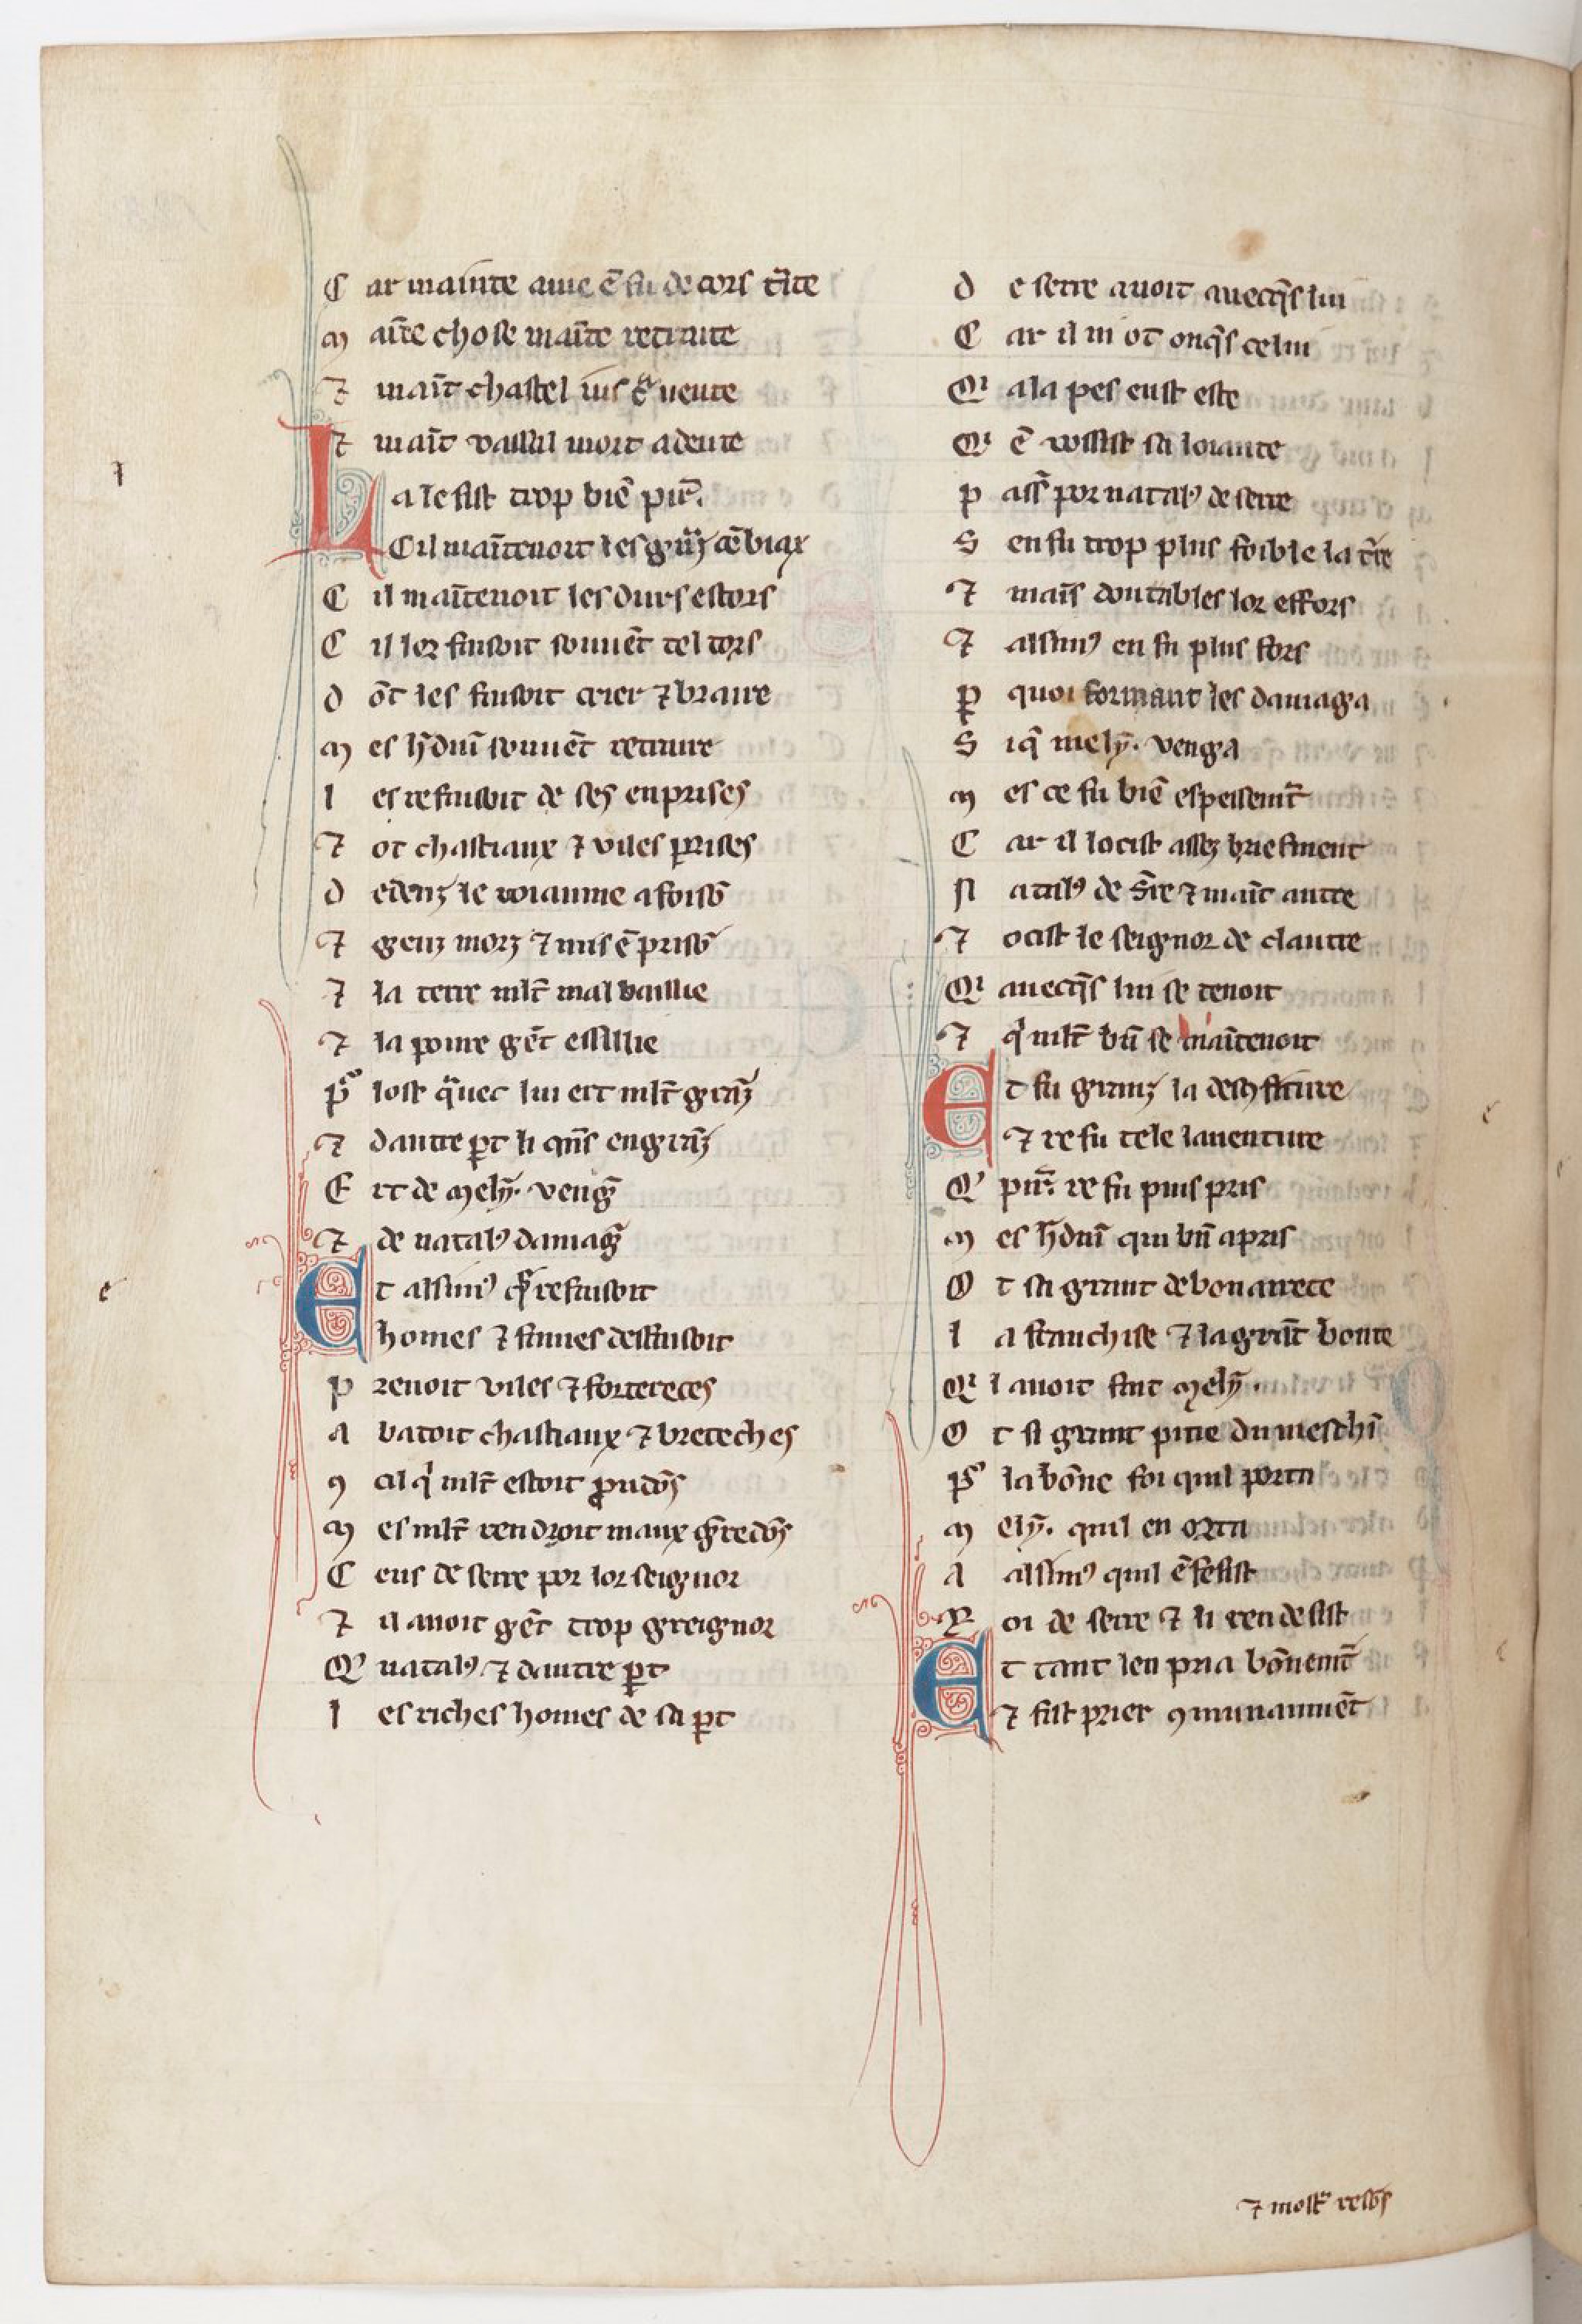 C ar mainte ame ē fu de cors t̾ite
M aīte chose maīte retraite
⁊ maīt chastel mis cͣuente
⁊ maīt vassal mort adente
L a le fist trop biē pir̄.
Cil maītenoit les gᵃnz cēbiax
C il maītenoit les durs estors
C il lor faisoit souuēt tel tors
D ōt les faisoit crier ⁊ braire
M es h̄dui souuēt retraire
L es refaisoit de ses enprises
⁊ ot chastiaux ⁊ viles prises
D edenz le roiaume a foisō
⁊ genz morz ⁊ mis ē prisō
⁊ la terre ml̄t mal baillie
⁊ la poure gēt essillie
P lost qͣuec lui ert ml̄t grāz
⁊ dautre ꝑt li qn̄s engrāz
E rt de Mely. veng̾
⁊ de natalꝰ damag̾
E t alsimꝰ refaisoit
homes ⁊ fames desfaisoit
P renoit viles ⁊ fortereces
A batoit chastiaux ⁊ breteches
ꝯ cil qͥ ml̄t estoit ꝓudōs
M es ml̄t rendroit maux gredōs
C eus de serre por lor seignor
⁊ il auoit gēt trop greignor
Qͥ natalꝰ ⁊ dautre ꝑt
L es riches homes de sa ꝑt
D e serre auoit auecqs̄ lui
C ar il ni ot onqs̄ celui
Qi a la pes eust este
Qi ē vossist sa loiaute
P ass̄ por natalꝰ de serre
S en fu trop plus foible la t̾re
⁊ mais̄ doutables lor effors
⁊ alsimꝰ en fu plus fors
ꝑ quoi formant les damaga
S i qͥ mely. venga
M es ce fu biē espessemt̄
C ar il locist assez briefment
N atalꝰ de s̾re ⁊ maīt autre
⁊ ocist le seignor de clautre
Qi auecqs̄ lui se tenoit
⁊ qͥ ml̄t bn̄ se maītenoit
E t fu granz la descꝯfiture
⁊ refu tele lauenture
Qͥ pir̄. re fu puis pris
M es h̄dui qui bn̄ apris
O t sa grant debonairete
L a franchise ⁊ la grāt bonte
Qi l auoit fait Mely.
O t si grant pitie du meschī
P la bōne foi quil porta
M ely. quil en orta
A alsimꝰ quil ē fesist
R oi de serre ⁊ li rendesist
E t tant len pria bōnemt̄
⁊ fist prier ꝯmunaumēt
⁊ mostͬ resōs